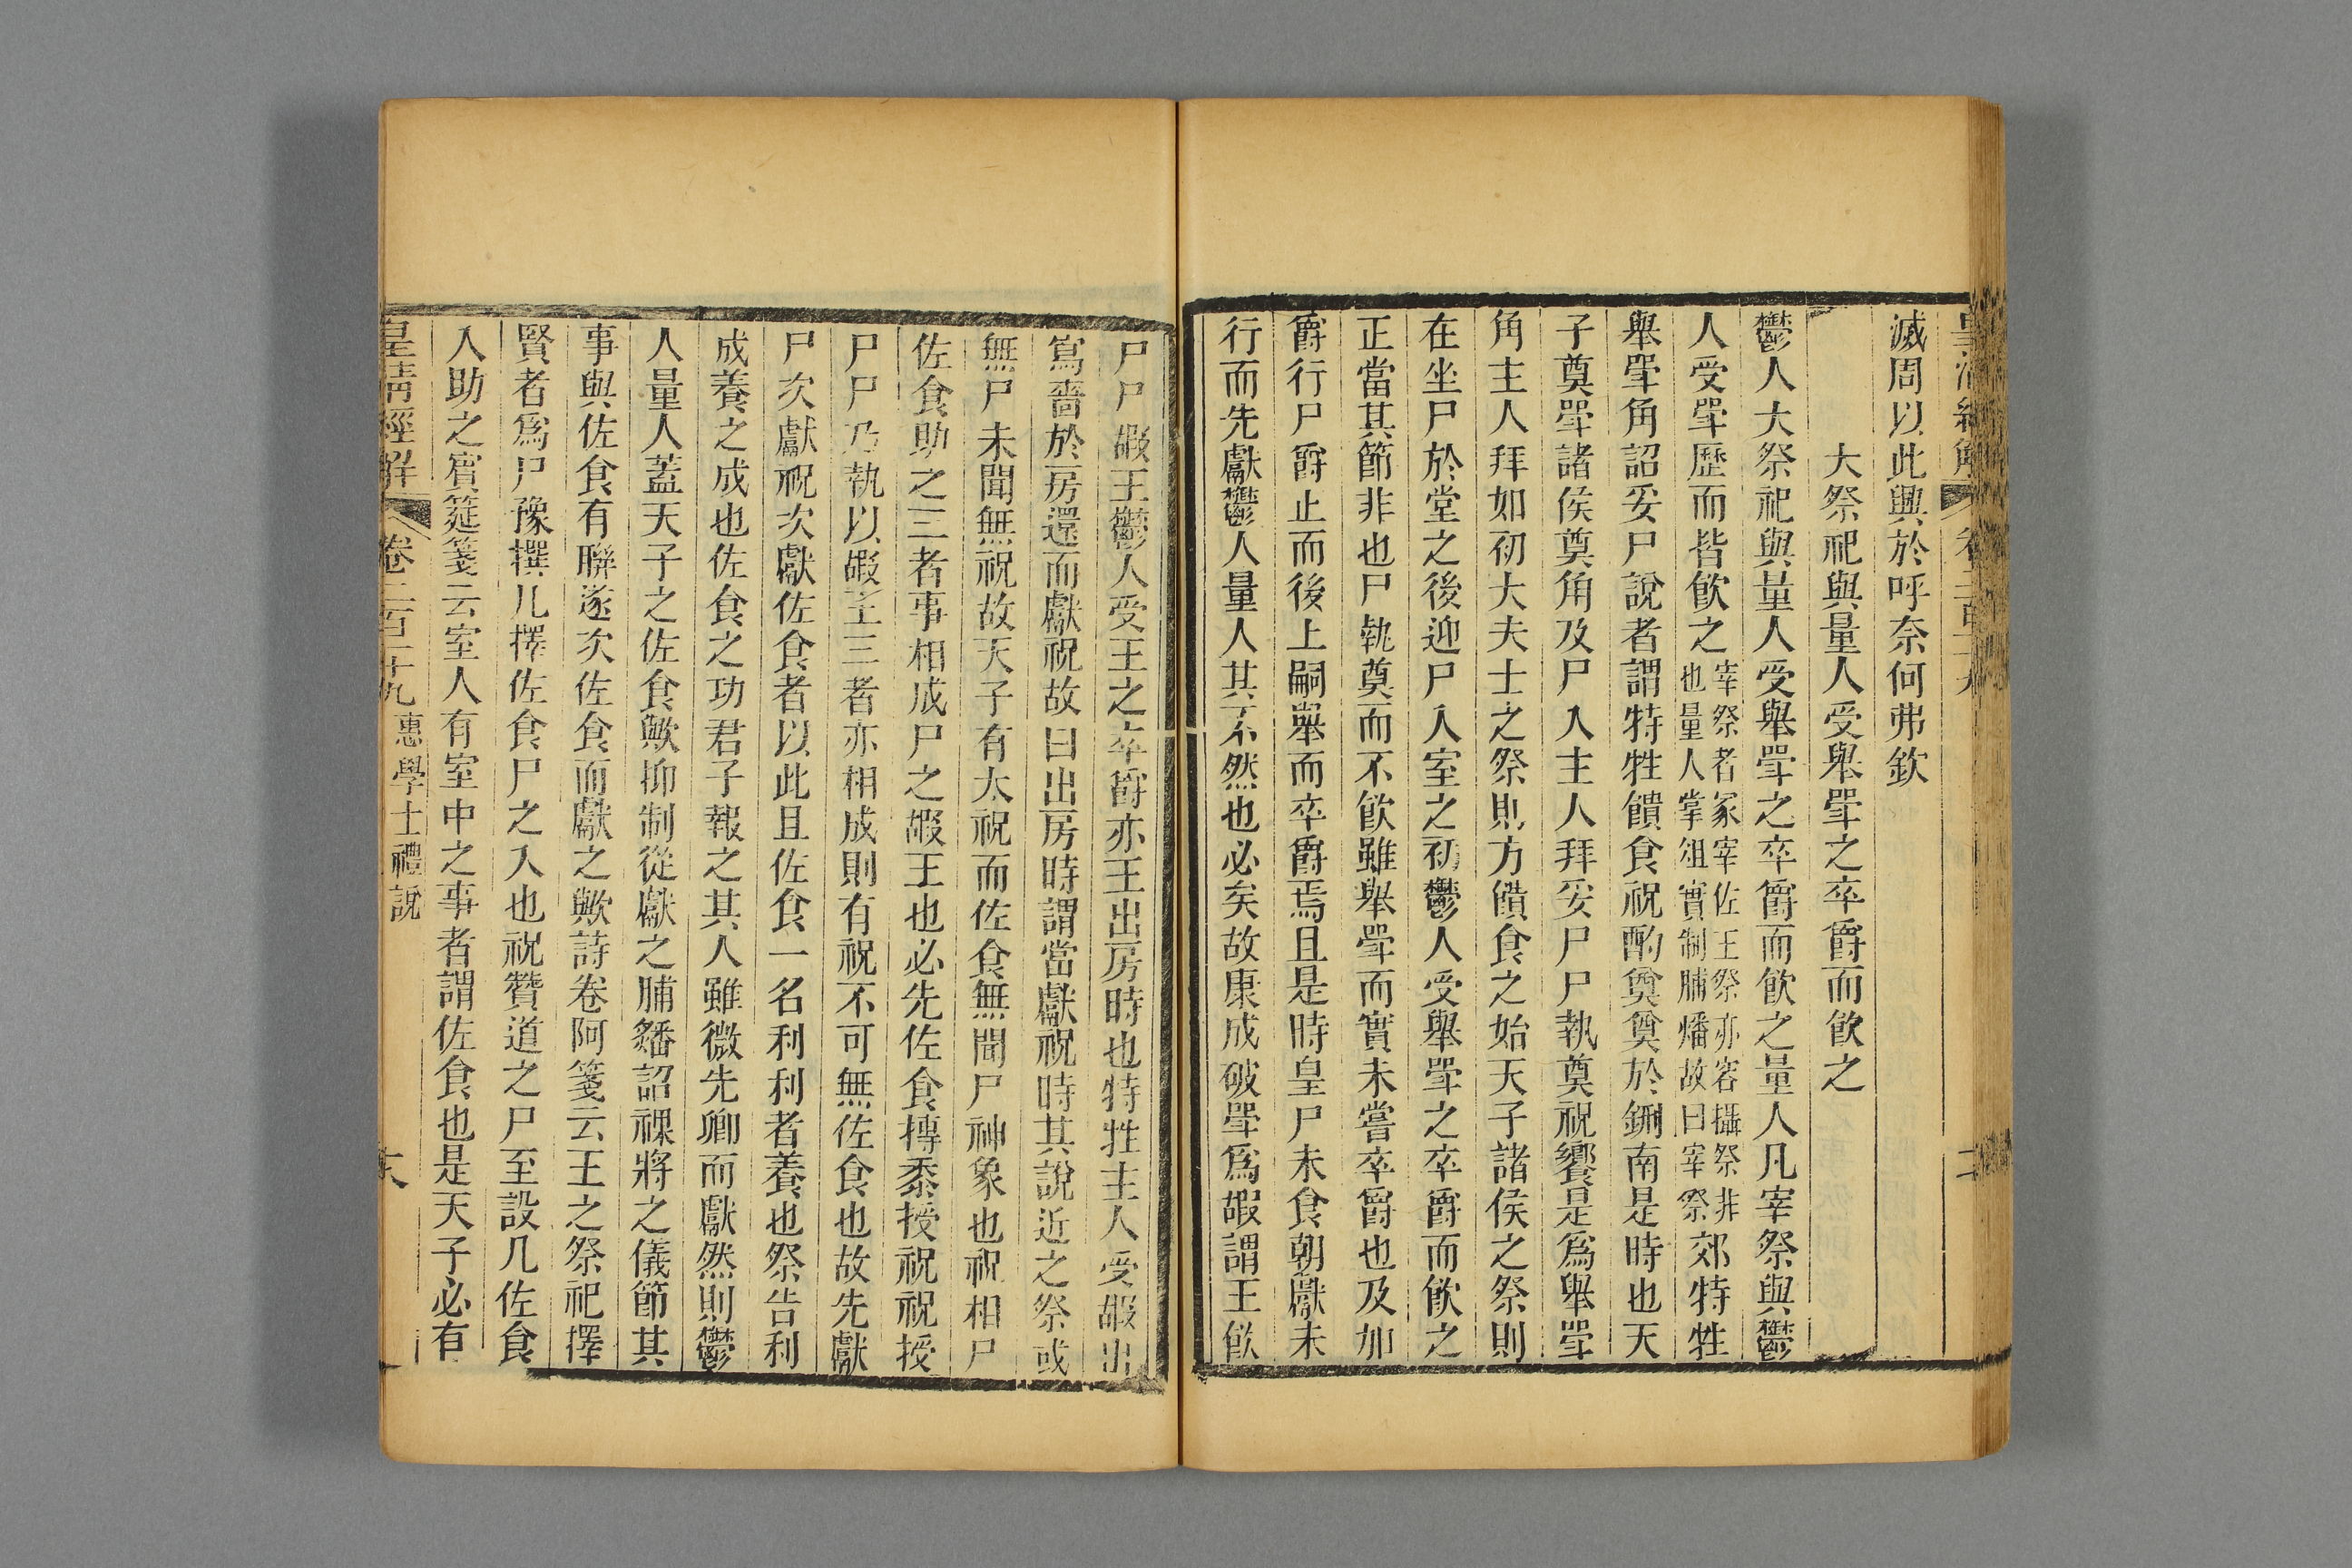 滅周以此興於呼奈何弗欽
大祭祀與量人受舉斝之卒爵而飲之
鬱人大祭祀與量人受舉斝之卒爵而飲之量人凡宰祭與鬱
人受斝歷而皆飲之宰祭者冢宰佐王祭亦容攝祭非也量人掌俎實制脯燔故曰宰祭郊特牲
舉斝角詔妥尸說者謂特牲饋食祝酌奠奠於鉶南是時也天
子奠斝諸侯奠角及尸入主人拜妥尸尸執奠祝饗是爲舉斝
角主人拜如初大夫士之祭則方饋食之始天子諸侯之祭則
在坐尸於堂之後迎尸入室之初鬱人受舉斝之卒爵而飲之
正當其節非也尸執奠而不飲雖舉斝而實未嘗卒爵也及加
爵行尸爵止而後上嗣舉而卒爵焉且是時皇尸未食朝獻未
行而先獻鬱人量人其不然也必矣故康成破斝爲嘏謂王飲
尸尸嘏王鬱人受王之卒爵亦王出房時也特牲主人受嘏出
寫嗇於房還而獻祝故曰出房時謂當獻祝時其說近之祭或
無尸未聞無祝故天子有大祝而佐食無聞尸神象也祝相尸
佐食助之三者事相成尸之嘏王也必先佐食摶黍授祝祝授
尸尸乃執以嘏王三者亦相成則有祝不可無佐食也故先獻
尸次獻祝次獻佐食者以此且佐食一名利利者養也祭告利
成養之成也佐食之功君子報之其人雖微先卿而獻然則鬱
人量人蓋天子之佐食歟抑制從獻之脯燔詔祼將之儀節其
事與佐食有聯遂次佐食而獻之歟詩卷阿箋云王之祭祀擇
賢者爲尸豫撰几擇佐食尸之入也祝贊道之尸至設几佐食
入助之賓筵箋云室人有室中之事者謂佐食也是天子必有
皇清經解 卷二百二十九 惠學士禮說